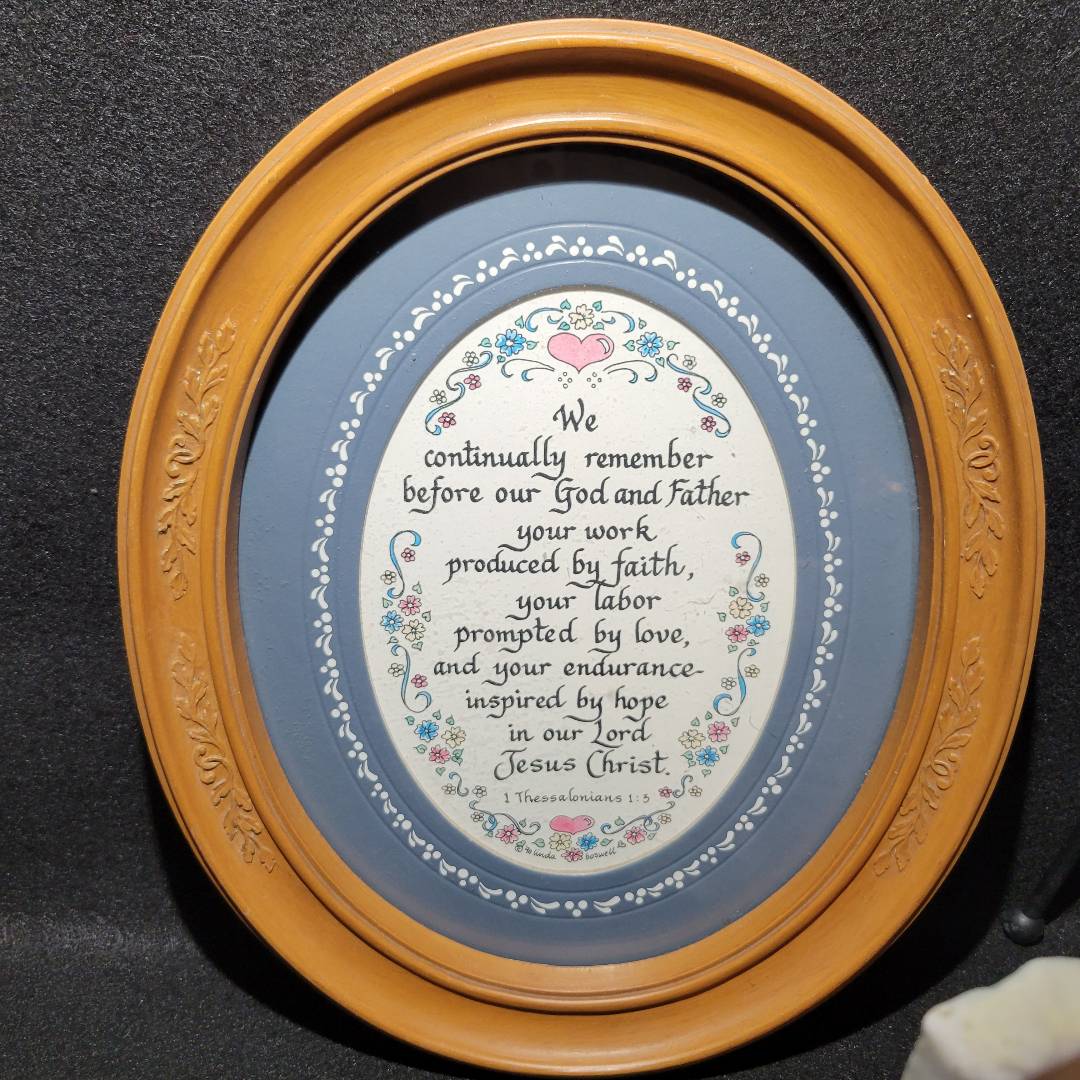 We
continually remember
before our God and Father
your work
produced by faith,
your labor
prompted by love,
and your endurance
inspired by hope
in our Lord
Jesus Christ.
1 Thessalonians 1:3
© 90 linda boswell